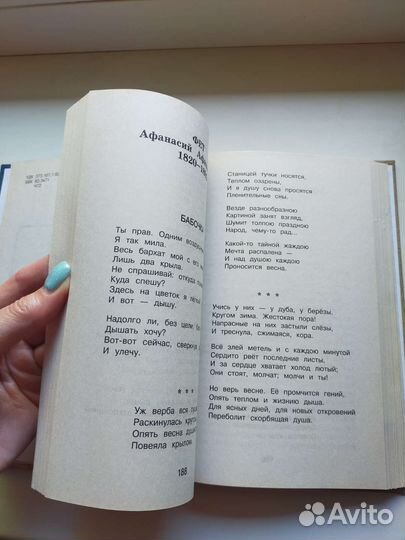 ФЕТ
Афанасий
1820–
БАБОЧКА
Ты прав. Одним
Я так мила.
Весь бархат мой с его
Лишь два крыла.
Не спрашивай: откуда
Куда спешу?
Здесь на цветок я
И вот — дышу.
Надолго ли, без цели, без
Дышать хочу?
Вот-вот сейчас,
И улечу.
* * *
Уж верба вся
Раскинулась
Опять весна
Повеяла крылом.
188
Станицей тучки носятся,
Теплом озарены,
И в душу снова просятся
Пленительные сны.
Везде разнообразною
Картиной занят взгляд,
Шумит толпою праздною
Народ, чему-то рад...
Какой-то тайной жаждою
Мечта распалена —
И над душою каждою
Проносится весна.
* * *
Учись у них — у дуба, у берёзы.
Кругом зима. Жестокая пора!
Напрасные на них застыли слёзы,
И треснула, сжимаяся, кора.
Всё злей метель и с каждою минутой
Сердито рвёт последние листы,
И за сердце хватает холод лютый;
Они стоят, молчат; молчи и ты!
Но верь весне. Её промчится гений,
Опять теплом и жизнию дыша.
Для ясных дней, для новых откровений
Переболит скорбящая душа.
Avito